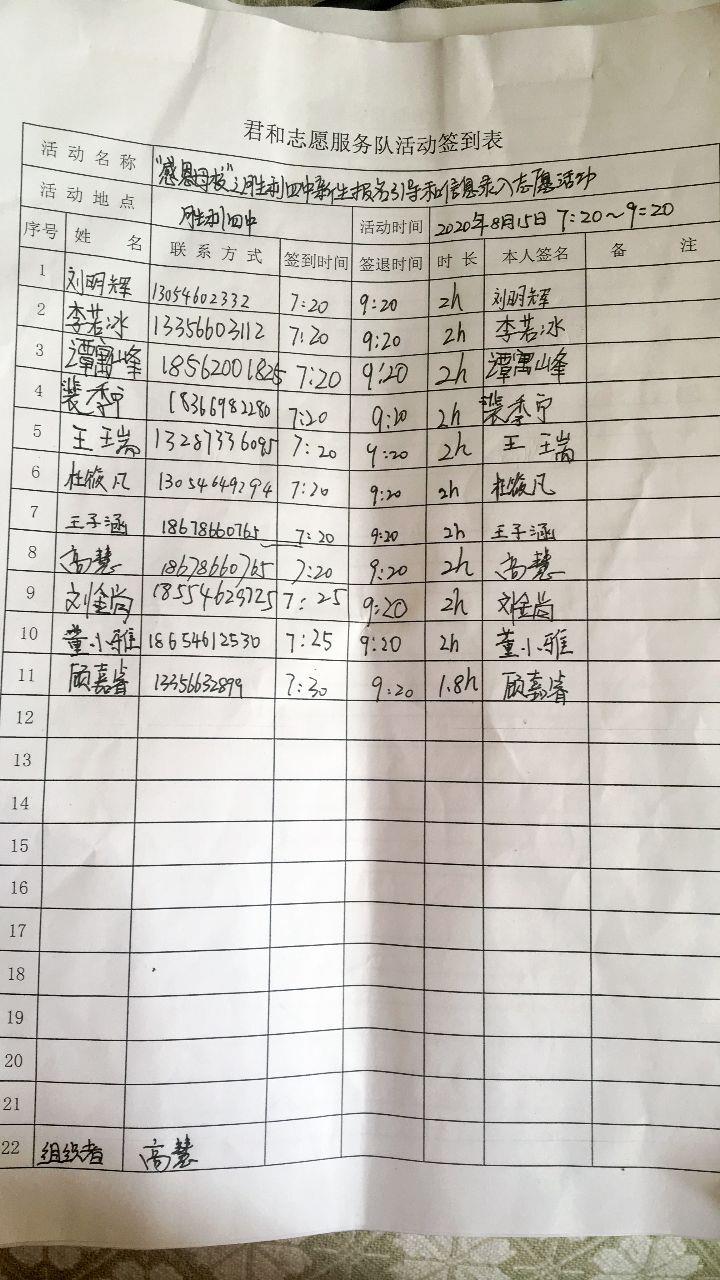 君和志愿服务队活动签到表
活动名称 "感恩母校"之胜利四中新生报名引导和信息录入志愿活动
活动地点 胜利四中 活动时间 2020年8月15日 7:20～9:20
序号 姓名 联系方式 签到时间 签退时间 时长 本人签名 备注
1 刘明辉 13054602332 7:20 9:20 2h 刘明辉
2 李若冰 13356603112 7:20 9:20 2h 李若冰
3 谭寓峰 18562001825 7:20 9:20 2h 谭寓峰
4 裴季宁 18366982280 7:20 9:20 2h 裴季宁
5 王瑞 13287336095 7:20 9:20 2h 王瑞
6 杜筱凡 13054649294 7:20 9:20 2h 杜筱凡
7 王子涵 18678660765 7:20 9:20 2h 王子涵
8 高慧 18678660765 7:20 9:20 2h 高慧
9 刘金尚 18554629725 7:25 9:20 2h 刘金尚
10 董小雅 18654612530 7:25 9:20 2h 董小雅
11 顾嘉睿 13356632899 7:30 9:20 1.8h 顾嘉睿
12
13
14
15
16
17
18
19
20
21
22 组织者 高慧